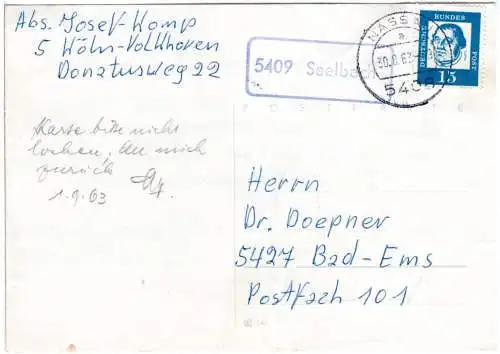 Abs. Josef Komp
5 Köln-Volkhoven
Donatusweg 22
5409 Seelbach
NASSAU
a
30.8.63
5408
DEUTSCHE
BUNDES
POST
15
POSTKARTE
Karte bitte nicht
lochen, An mich
zurück
1.9.63
Herrn
Dr. Doepner
5427 Bad-Ems
Postfach 101